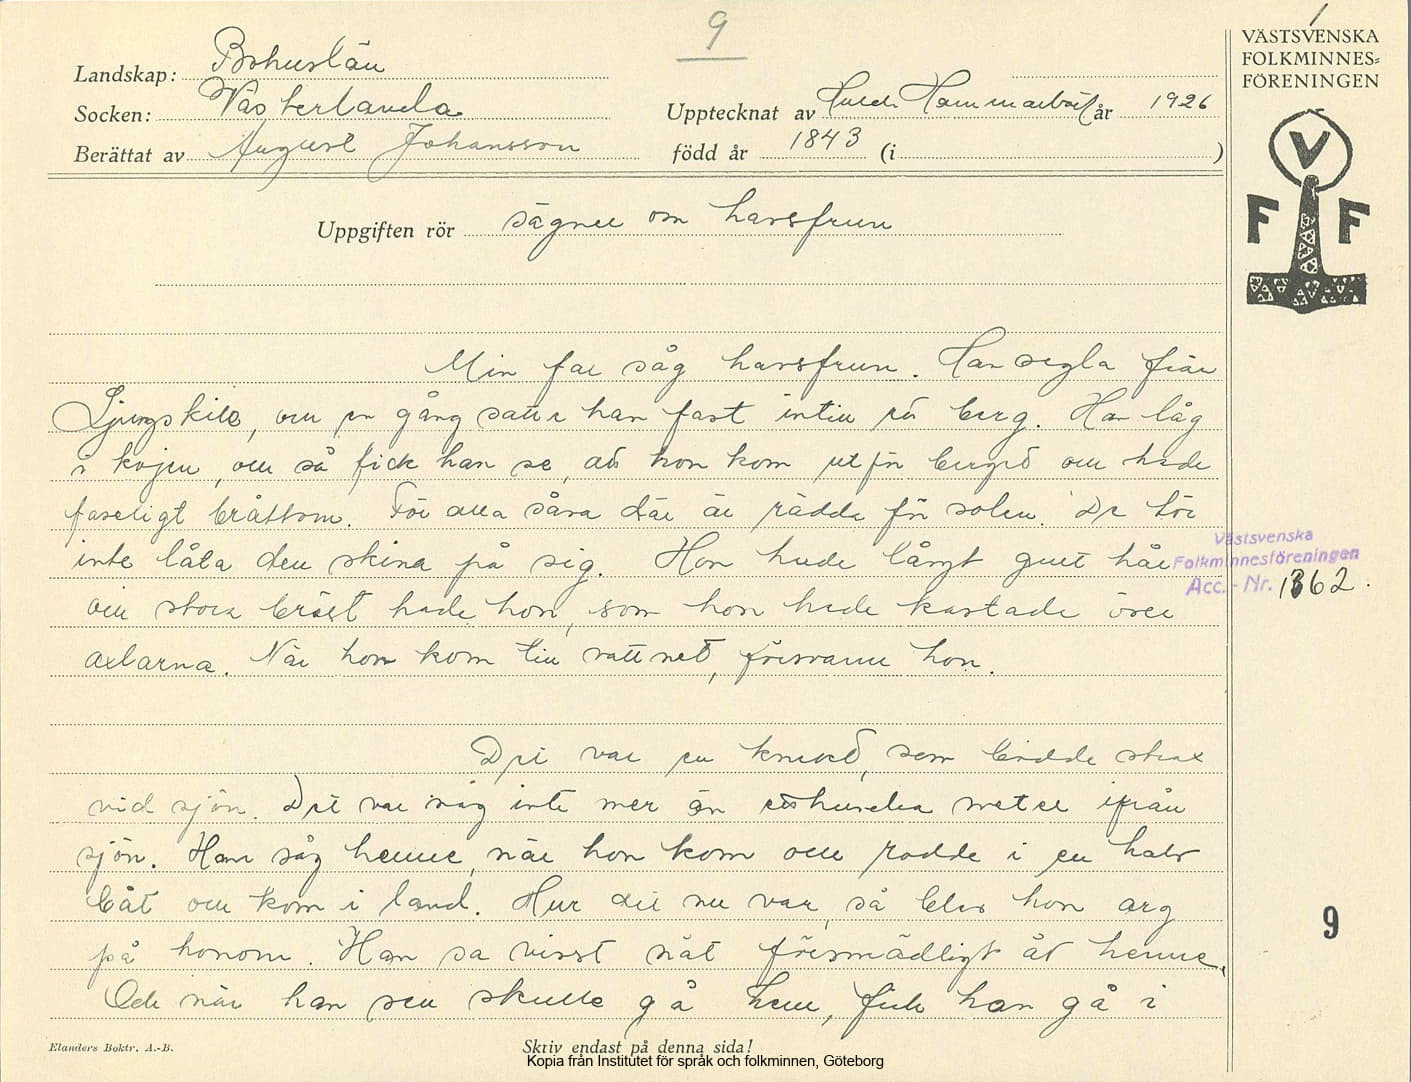 9
Landskap: Bohuslän
Socken: Västerlanda
Berättat av August Johansson
Upptecknat av Hulda Hammarbäck år 1926
född år 1843 (i )
Uppgiften rör sägner om havsfrun
VÄSTSVENSKA
FOLKMINNES=
FÖRENINGEN
V
F F
Min far såg havsfrun. Han segla från
Ljungskile, ou en gång satte han fast intill ett berg. Han låg
i kojen, ou så fick han se, att hon kom ut frn berget ou hade
faseligt bråttom. För alla såna där är rädda för solen. De tör
inte låta den skina på sig. Hon hade långt gult hår
ou stora bröst hade hon, som hon hade kastade över
axlarna. När hon kom till vattnet, försvann hon.
Västsvenska
Folkminnesföreningen
Acc. - Nr. 1362.
Det var en knekt, som bodde strax
vid sjön. Det var någ inte mer än etthundra meter ifrån
sjön. Han såg henne, när hon kom ou rodde i en halv
båt ou kom i land. Hur det nu var, så blev hon arg
på honom. Han sa visst nåt försmädligt åt henne.
Och när han sen skulle gå hem, fick han gå i
9
Elanders Boktr. A.-B.
Skriv endast på denna sida!
Kopia från Institutet för språk och folkminnen, Göteborg